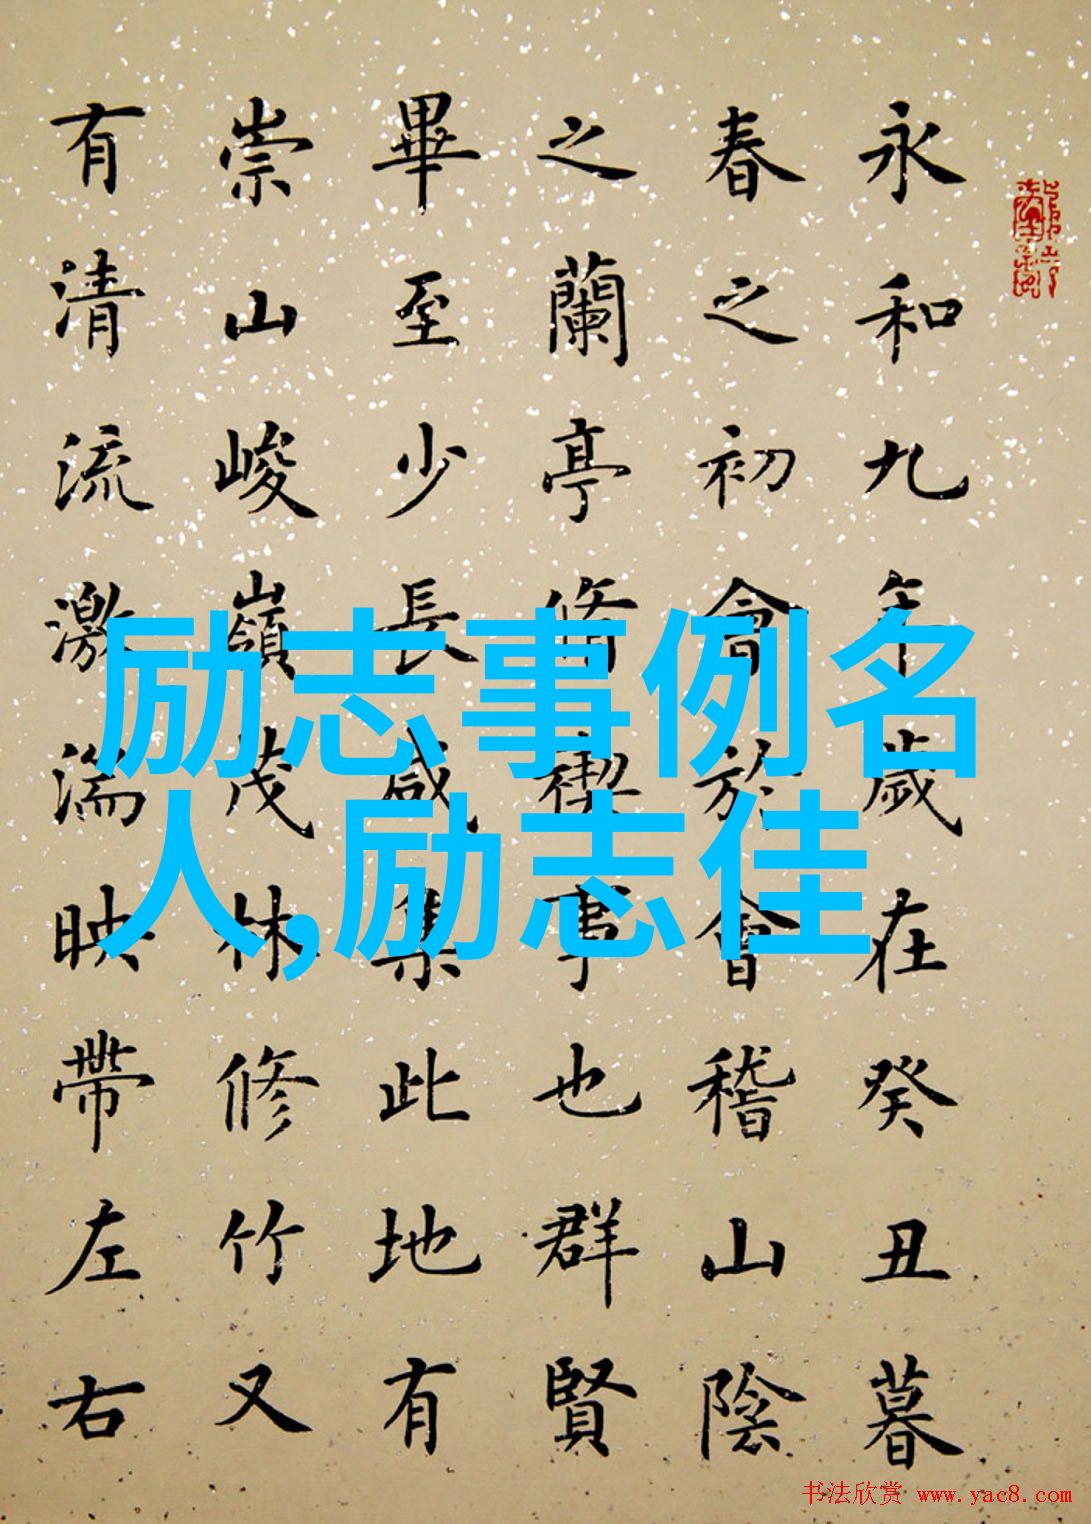 永和九年歲在癸丑暮
春之初會於會稽山陰
之蘭亭脩禊事也群賢
畢至少長咸集此地有
崇山峻嶺茂林修竹又
有清流激湍映帶左右
励志事例名
人,励志佳
书法欣赏 www.yac8.com